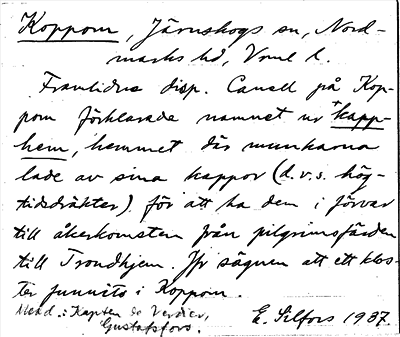 Koppom, Järnskogs sn, Nord-
marks hd, Vrml l.
Framlidne disp. Canell på Kop-
pom förklarade namnet ur "kapp-
hem", hemmet där munkarna
lade av sina kappor (d.v.s. hög-
tidsdräkter) för att ha dem i förvar
till återkomsten från pilgrimsfärden
till Trondhjem. Jfr sägnen att ett klos-
ter funnits i Koppom.
Medd.: Kapten de Verdier,
Gustafsfors.
E. Silfors 1937.